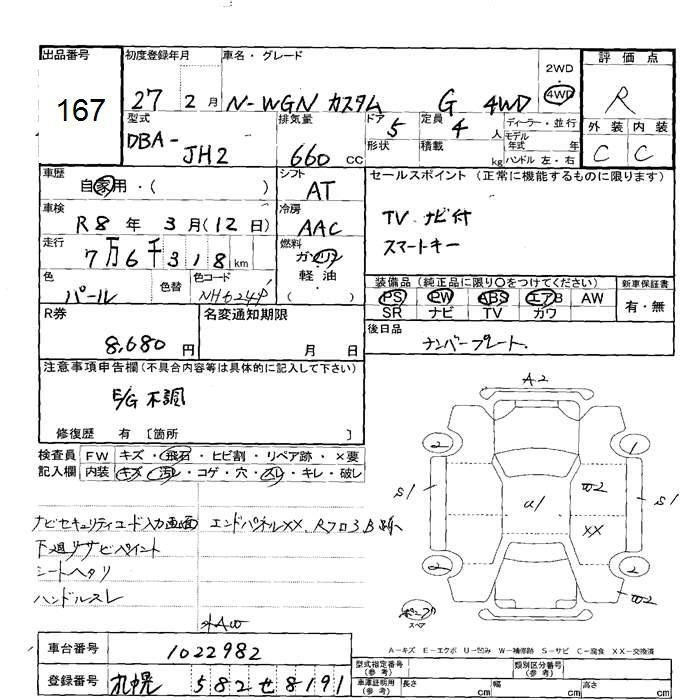 出品番号
167
初度登録年月
27 2月
車名・グレード
N-WGN カスタム G 4WD
2WD
・
4WD
評価点
R
外装 内装
C C
型式
DBA-
JH2
排気量
660 CC
ドア
5
形状
定員
4 人
積載 kg
ディーラー・並行
モデル
年式 年
ハンドル 左・右
車歴
自家用・( )
車検
R8年 3月(12日)
走行
7万6千318km
色
パール
色替
色コード
NH624P
シフト
AT
冷房
AAC
燃料
ガソリン
軽油
( )
セールスポイント (正常に機能するものに限ります)
TV ナビ付
スマートキー
装備品 (純正品に限り〇をつけてください)
PS PW ABS エアB AW
SR ナビ TV カワ
新車保証書
有・無
R券
8,680円
名変通知期限
月 日
後日品
ナンバープレート.
注意事項申告欄(不具合内容等は具体的に記入して下さい)
E/G不調
修復歴 有 〔箇所 〕
検査員
記入欄
FW キズ・飛石・ヒビ割・リペア跡・×要
内装 キズ・汚レ・コゲ・穴・スレ・キレ・破レ
ナビセキュリティコード入力画面
エンドパネルXX、Rフロ3B
下廻りサビペイント
シートヘタリ
ハンドルスレ
社AW
A2
2 1
S1 U1 W2 S1
XX
2 2
W2
ボンプ
スペア
A-キズ E-エクボ U-凹み W-補修跡 S-サビ C-腐食 XX-交換済
車台番号
1022982
登録番号
札幌 582 せ 8191
型式指定番号
(参考)
類別区分番号
(参考)
車庫証明用
(参考)
長さ cm
幅 cm
高さ cm